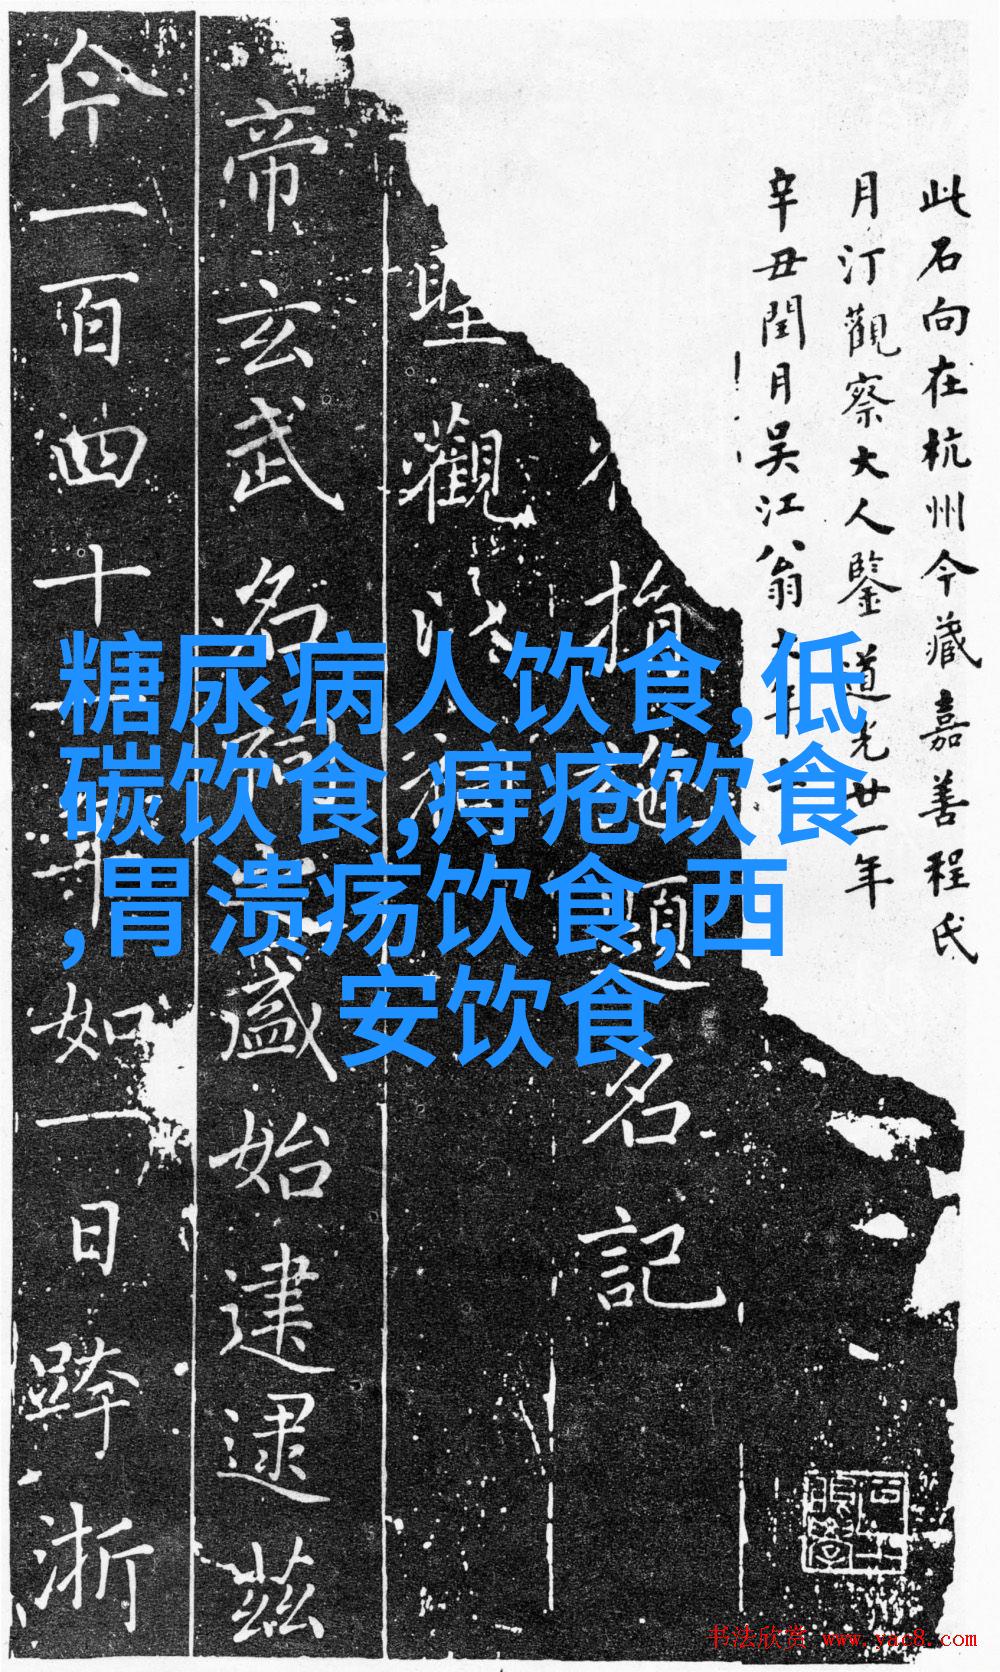 此石向在杭州今藏嘉善程氏
月汀觀察大人鑒道光廿一年
辛丑閏月吳江翁
指題名記
觀
帝玄武名盛始建逮茲
一百四十年如一日跨浙
糖尿病人饮食,低
碳饮食,痔疮饮食
,胃溃疡饮食,西
安饮食
书法欣赏 www.yac8.com